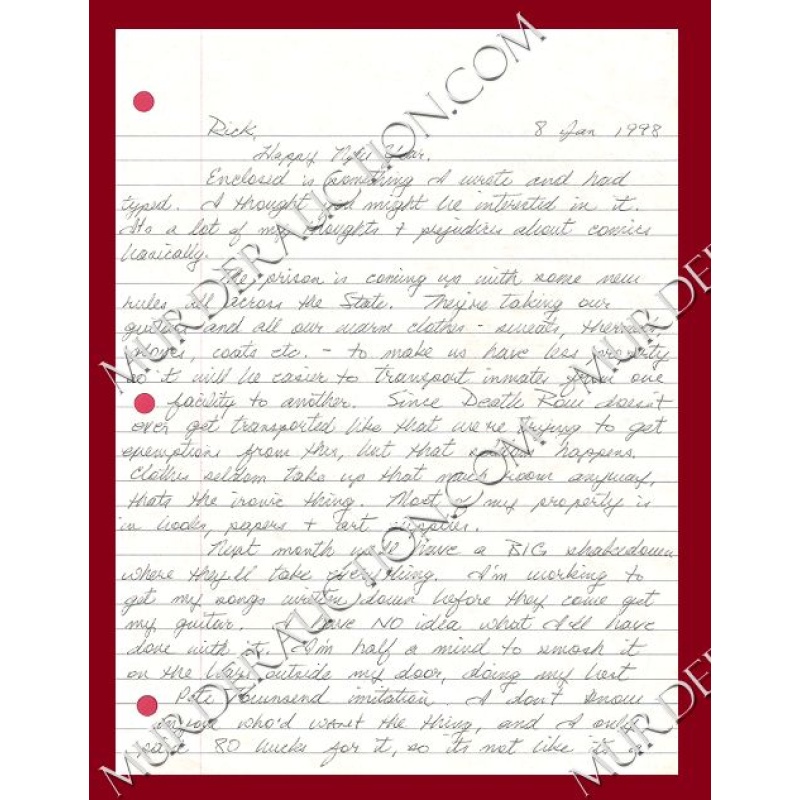 Rick, 8 Jan 1998
Happy New Year.
Enclosed is something I wrote and had
typed. I thought you might be interested in it.
Its a lot of my thoughts + prejudices about comics
basically.
The prison is coming up with some new
rules all across the State. They're taking our
guitars and all our warm clothes - sweats, thermals,
gloves, coats etc. - to make us have less property
so it will be easier to transport inmates from one
facility to another. Since Death Row doesn't
ever get transported like that we're trying to get
exemptions from this, but that seldom happens.
Clothes seldom take up that much room anyway,
thats the ironic thing. Most of my property is
in books, papers + art supplies.
Next month we'll have a BIG shakedown
where they'll take everything. I'm working to
get my songs written down before they come get
my guitar. I have NO idea what I'll have
done with it. I'm half a mind to smash it
on the bars outside my door, doing my best
Pete Townsend imitation. I don't know
who'd want the thing, and I only
80 bucks for it, so its not like it
MURDERAUCTION.COM
MURDERAUCTION.COM
MURDERAUCTION.COM